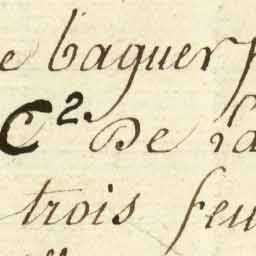 e baguer
C². De la
trois feu